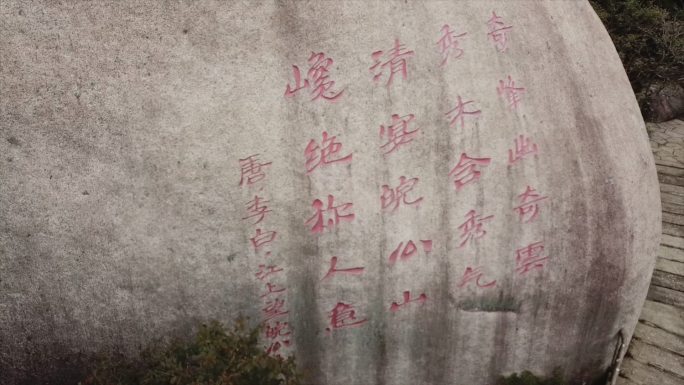 奇峰出奇雲
秀木含秀气
清宴皖公山
巉绝称人意
唐·李白·江上望皖公